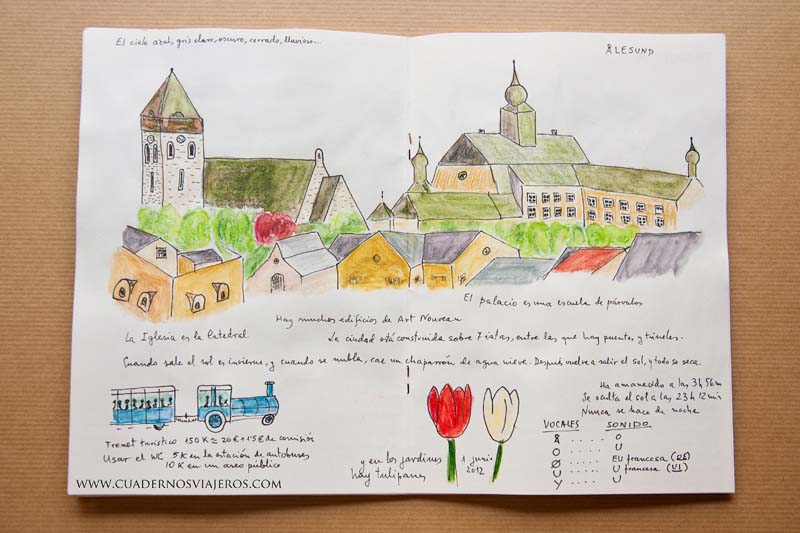 El cielo azul, gris claro, oscuro, cerrado, lluvioso...
ÅLESUND
El palacio es una escuela de párvulos
Hay muchos edificios de Art Nouveau
La Iglesia es la Catedral
La ciudad está construida sobre 7 islas, entre las que hay puentes y túneles.
Cuando sale el sol es invierno, y cuando se nubla, cae un chaparrón de agua nieve. Después vuelve a salir el sol, y todo se seca.
Ha amanecido a las 3h 56m
Se oculta el sol a las 23h 12min
Nunca se hace de noche
VOCALES SONIDO
Å ..... O
O ..... U
Ø ..... EU francesa (OE)
U ..... U francesa (UI)
Y ..... U
Trenet turístico 150K ≃ 20€ + 1'5€ de comisión
Usar el WC 5K en la estación de autobuses
10K en un aseo público
y en los jardines
hay tulipanes
1 junio
2012
WWW.CUADERNOSVIAJEROS.COM